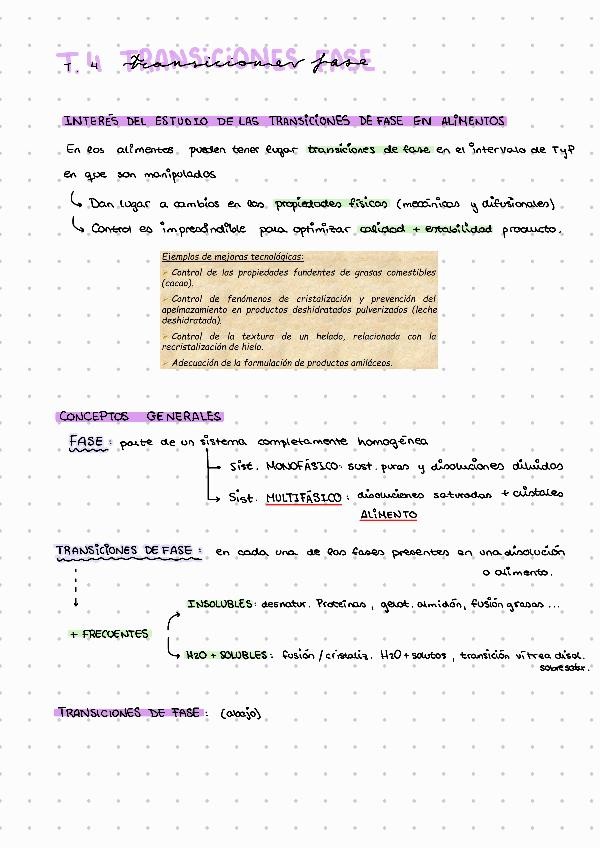 T. 4 TRANSICIONES FASE
T. 4 Transiciones fase
INTERÉS DEL ESTUDIO DE LAS TRANSICIONES DE FASE EN ALIMENTOS
En los alimentos pueden tener lugar transiciones de fase en el intervalo de TyP
en que son manipulados
Dan lugar a cambios en las propiedades físicas (mecánicas y difusionales)
Control es imprescindible para optimizar calidad + estabilidad producto.
Ejemplos de mejoras tecnológicas:
➢ Control de las propiedades fundentes de grasas comestibles
(cacao).
➢ Control de fenómenos de cristalización y prevención del
apelmazamiento en productos deshidratados pulverizados (leche
deshidratada).
➢ Control de la textura de un helado, relacionada con la
recristalización de hielo.
➢ Adecuación de la formulación de productos amiláceos.
CONCEPTOS GENERALES
FASE: parte de un sistema completamente homogénea
Sist. MONOFÁSICO: sust. puras y disoluciones diluidas
Sist. MULTIFÁSICO: disoluciones saturadas + cristales
ALIMENTO
TRANSICIONES DE FASE: en cada una de las fases presentes en una disolución
o alimento.
INSOLUBLES: desnatur. Proteínas, gelat. almidón, fusión grasas ...
+ FRECUENTES
H2O + SOLUBLES: fusión / cristaliz. H2O + solutos, transición vítrea disol.
sobresatur.
TRANSICIONES DE FASE: (abajo)